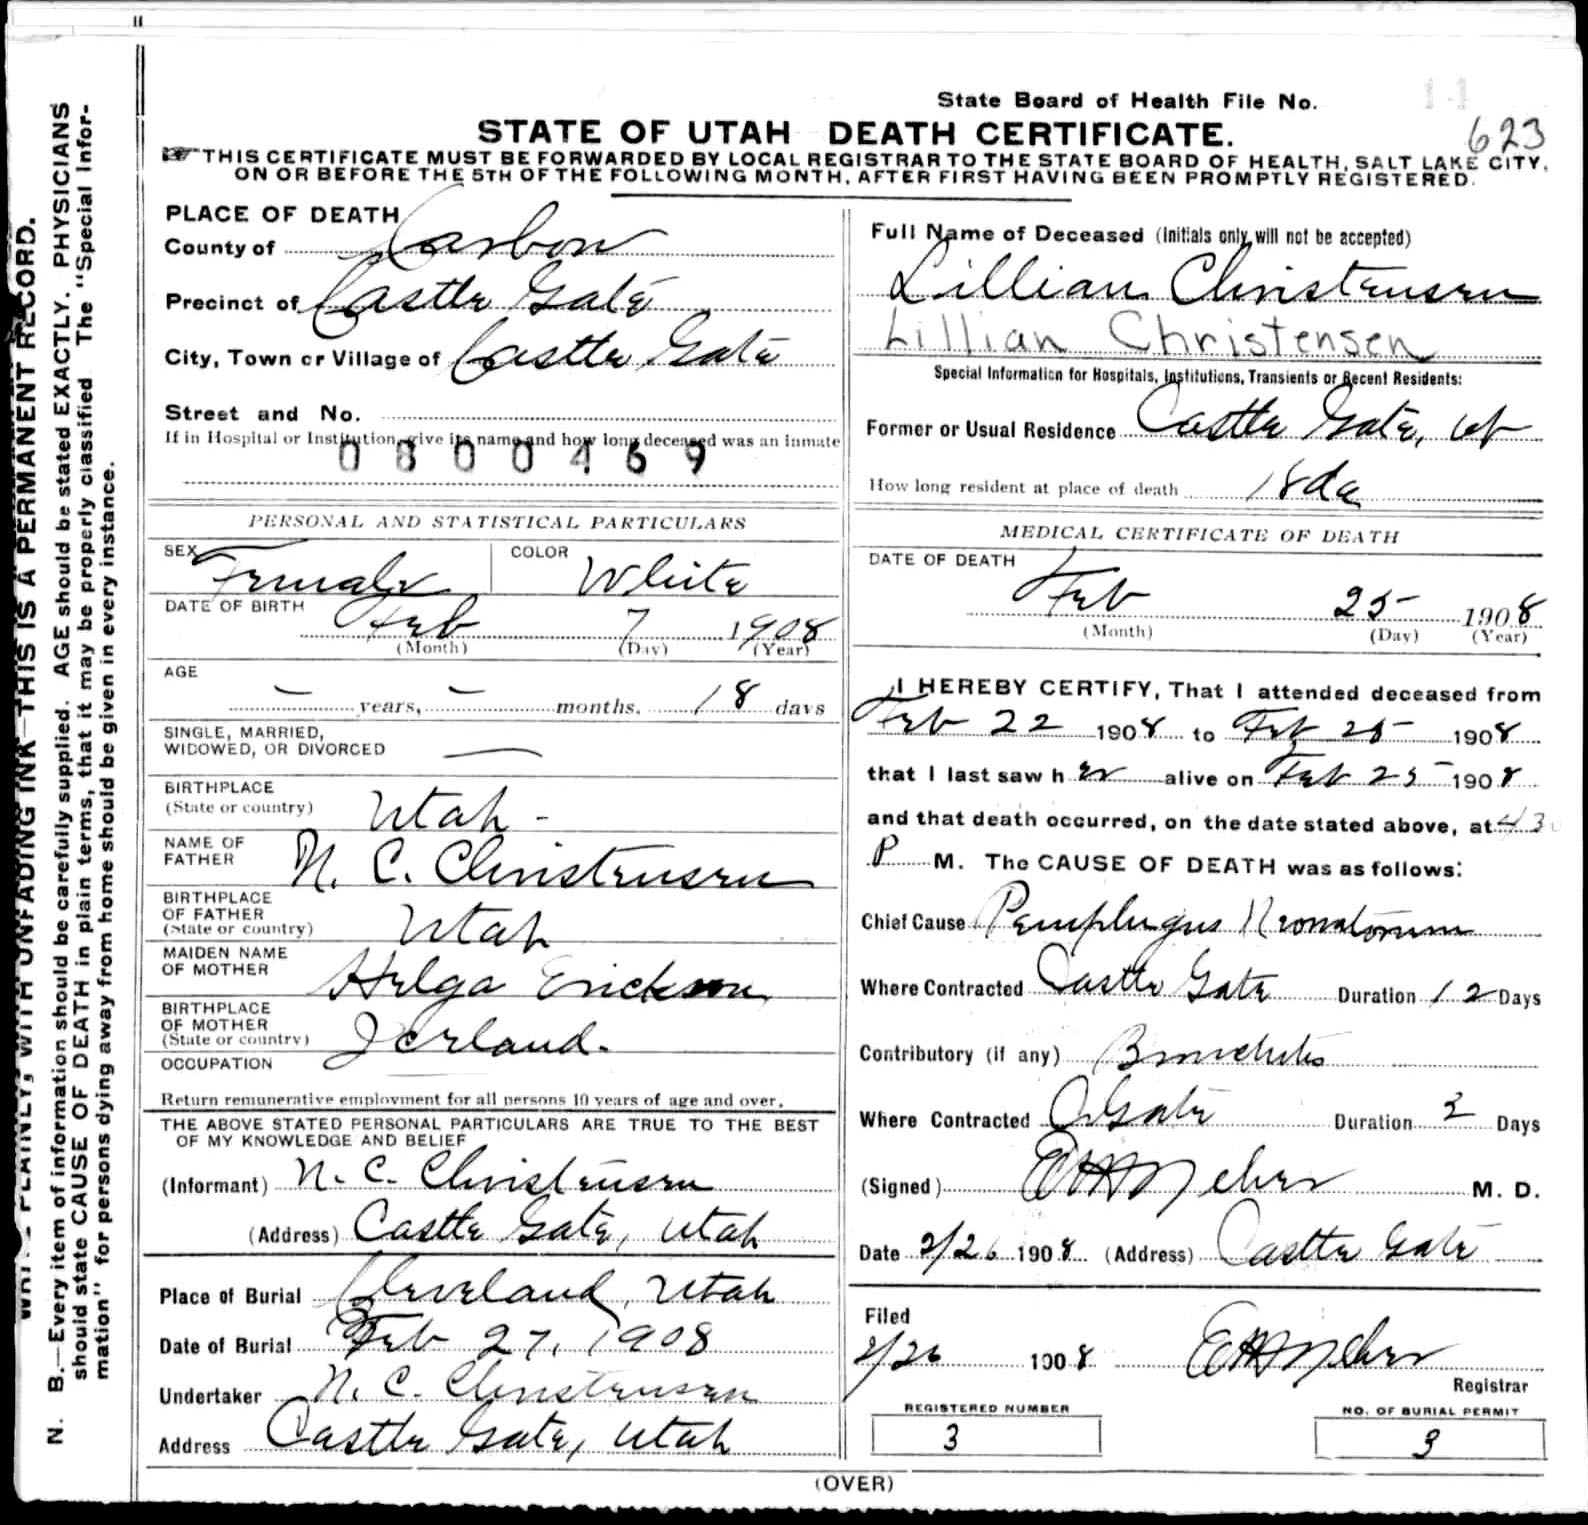 State Board of Health File No. 11
STATE OF UTAH DEATH CERTIFICATE.
623
THIS CERTIFICATE MUST BE FORWARDED BY LOCAL REGISTRAR TO THE STATE BOARD OF HEALTH, SALT LAKE CITY,
ON OR BEFORE THE 5TH OF THE FOLLOWING MONTH, AFTER FIRST HAVING BEEN PROMPTLY REGISTERED.
WRITE PLAINLY, WITH UNFADING INK—THIS IS A PERMANENT RECORD.
N. B.—Every item of information should be carefully supplied. AGE should be stated EXACTLY. PHYSICIANS
should state CAUSE OF DEATH in plain terms, that it may be properly classified The "Special Infor-
mation" for persons dying away from home should be given in every instance.
PLACE OF DEATH
County of Carbon
Precinct of Castle Gate
City, Town or Village of Castle Gate
Street and No.
If in Hospital or Institution, give its name and how long deceased was an inmate
0800469
PERSONAL AND STATISTICAL PARTICULARS
SEX Female COLOR White
DATE OF BIRTH
Feb 7 1908
(Month) (Day) (Year)
AGE
— years, — months, 18 days
SINGLE, MARRIED,
WIDOWED, OR DIVORCED —
BIRTHPLACE
(State or country) Utah -
NAME OF
FATHER N. C. Christensen
BIRTHPLACE
OF FATHER
(State or country) Utah
MAIDEN NAME
OF MOTHER Helga Erickson
BIRTHPLACE
OF MOTHER
(State or country) Icrland.
OCCUPATION
Return remunerative employment for all persons 10 years of age and over.
THE ABOVE STATED PERSONAL PARTICULARS ARE TRUE TO THE BEST
OF MY KNOWLEDGE AND BELIEF
(Informant) N. C. Christensen
(Address) Castle Gate, Utah
Place of Burial Cleveland, Utah
Date of Burial Feb 27, 1908
Undertaker N. C. Christensen
Address Castle Gate, Utah
Full Name of Deceased (Initials only will not be accepted)
Lillian Christensen
Lillian Christensen
Special Information for Hospitals, Institutions, Transients or Recent Residents:
Former or Usual Residence Castle Gate, Ut
How long resident at place of death 18 da
MEDICAL CERTIFICATE OF DEATH
DATE OF DEATH
Feb 25 1908
(Month) (Day) (Year)
I HEREBY CERTIFY, That I attended deceased from
Feb 22 1908 to Feb 25 1908
that I last saw her alive on Feb 25 1908
and that death occurred, on the date stated above, at 430
P M. The CAUSE OF DEATH was as follows:
Chief Cause Pemphigus Neonatorum
Where Contracted Castle Gate Duration 12 Days
Contributory (if any) Bronchitis
Where Contracted C Gate Duration Days
(Signed) M. D.
Date 2/26 1908 (Address) Castle Gate
Filed
2/26 1908
Registrar
REGISTERED NUMBER
3
NO. OF BURIAL PERMIT
3
(OVER)